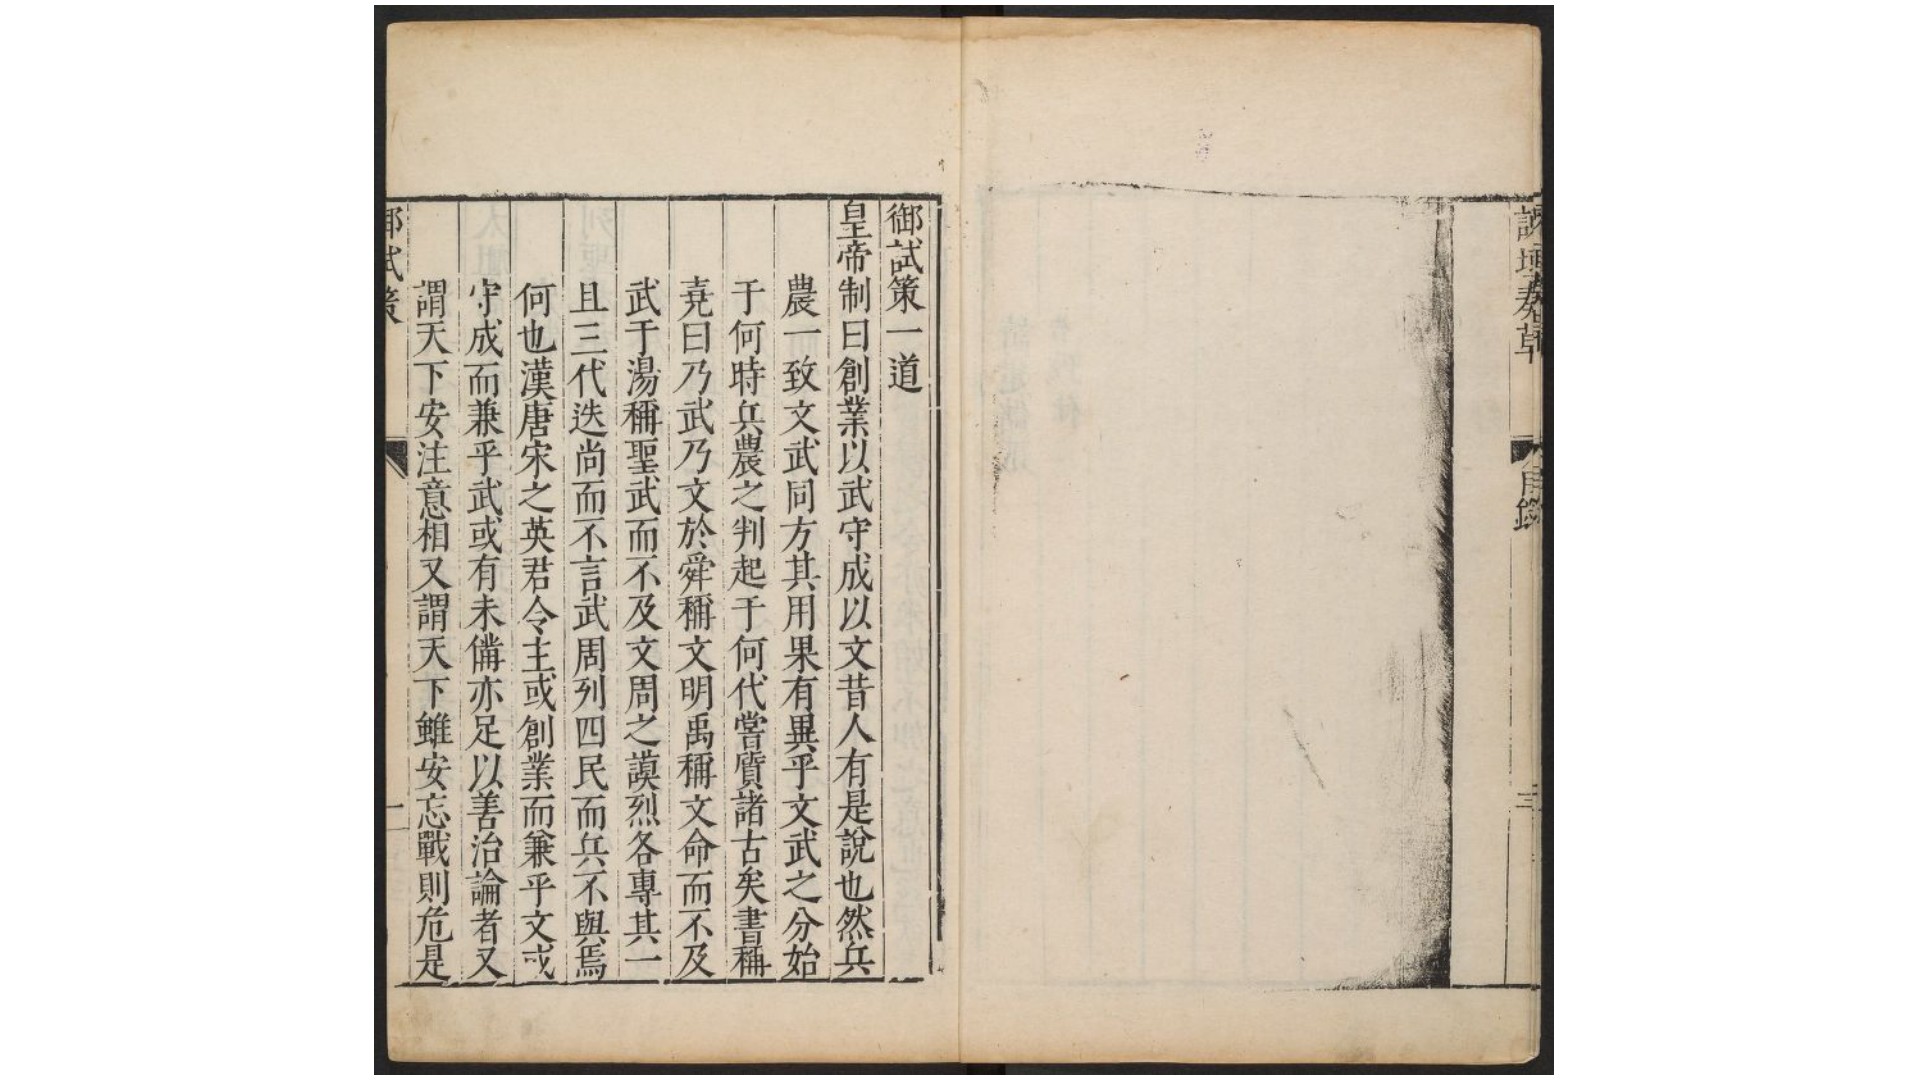 諫垣奏草
目錄
三
御試策一道
皇帝制曰創業以武守成以文昔人有是說也然兵
農一致文武同方其用果有異乎文武之分始
于何時兵農之判起于何代嘗質諸古矣書稱
堯曰乃武乃文於舜稱文明禹稱文命而不及
武于湯稱聖武而不及文周之謨烈各專其一
且三代迭尚而不言武周列四民而兵不與焉
何也漢唐宋之英君令主或創業而兼乎文或
守成而兼乎武或有未備亦足以善治論者又
謂天下安注意相又謂天下雖安忘戰則危是
御試策
一